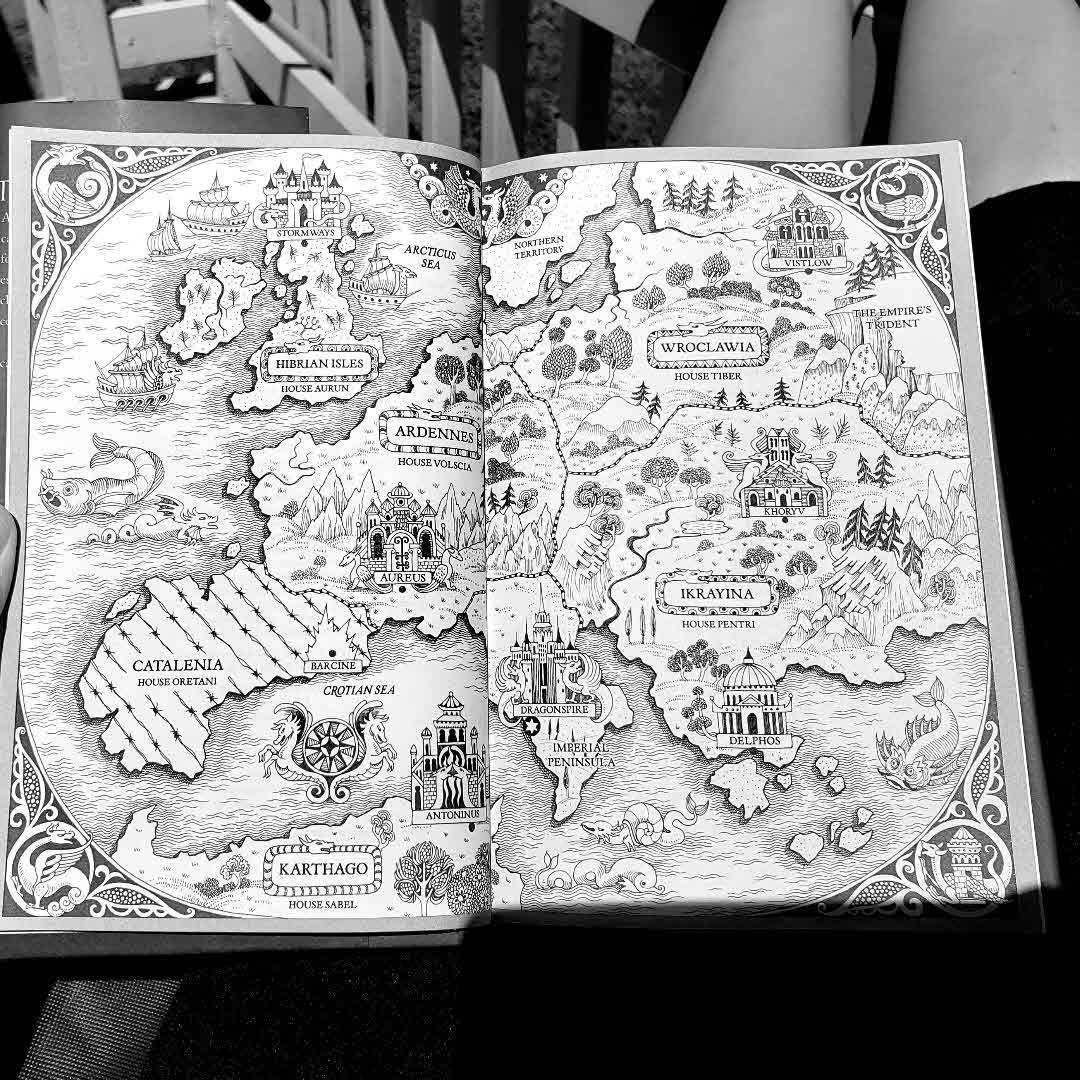 STORMWAYS
ARCTICUS
SEA
HIBRIAN ISLES
HOUSE AURUN
ARDENNES
HOUSE VOLSCIA
AUREUS
CATALENIA
HOUSE ORETANI
BARCINE
CROTIAN SEA
ANTONINUS
KARTHAGO
HOUSE SABEL
NORTHERN
TERRITORY
VISTLOW
THE EMPIRE'S
TRIDENT
WROCLAWIA
HOUSE TIBER
KHORYV
IKRAYINA
HOUSE PENTRI
DRAGONSPIRE
IMPERIAL
PENINSULA
DELPHOS